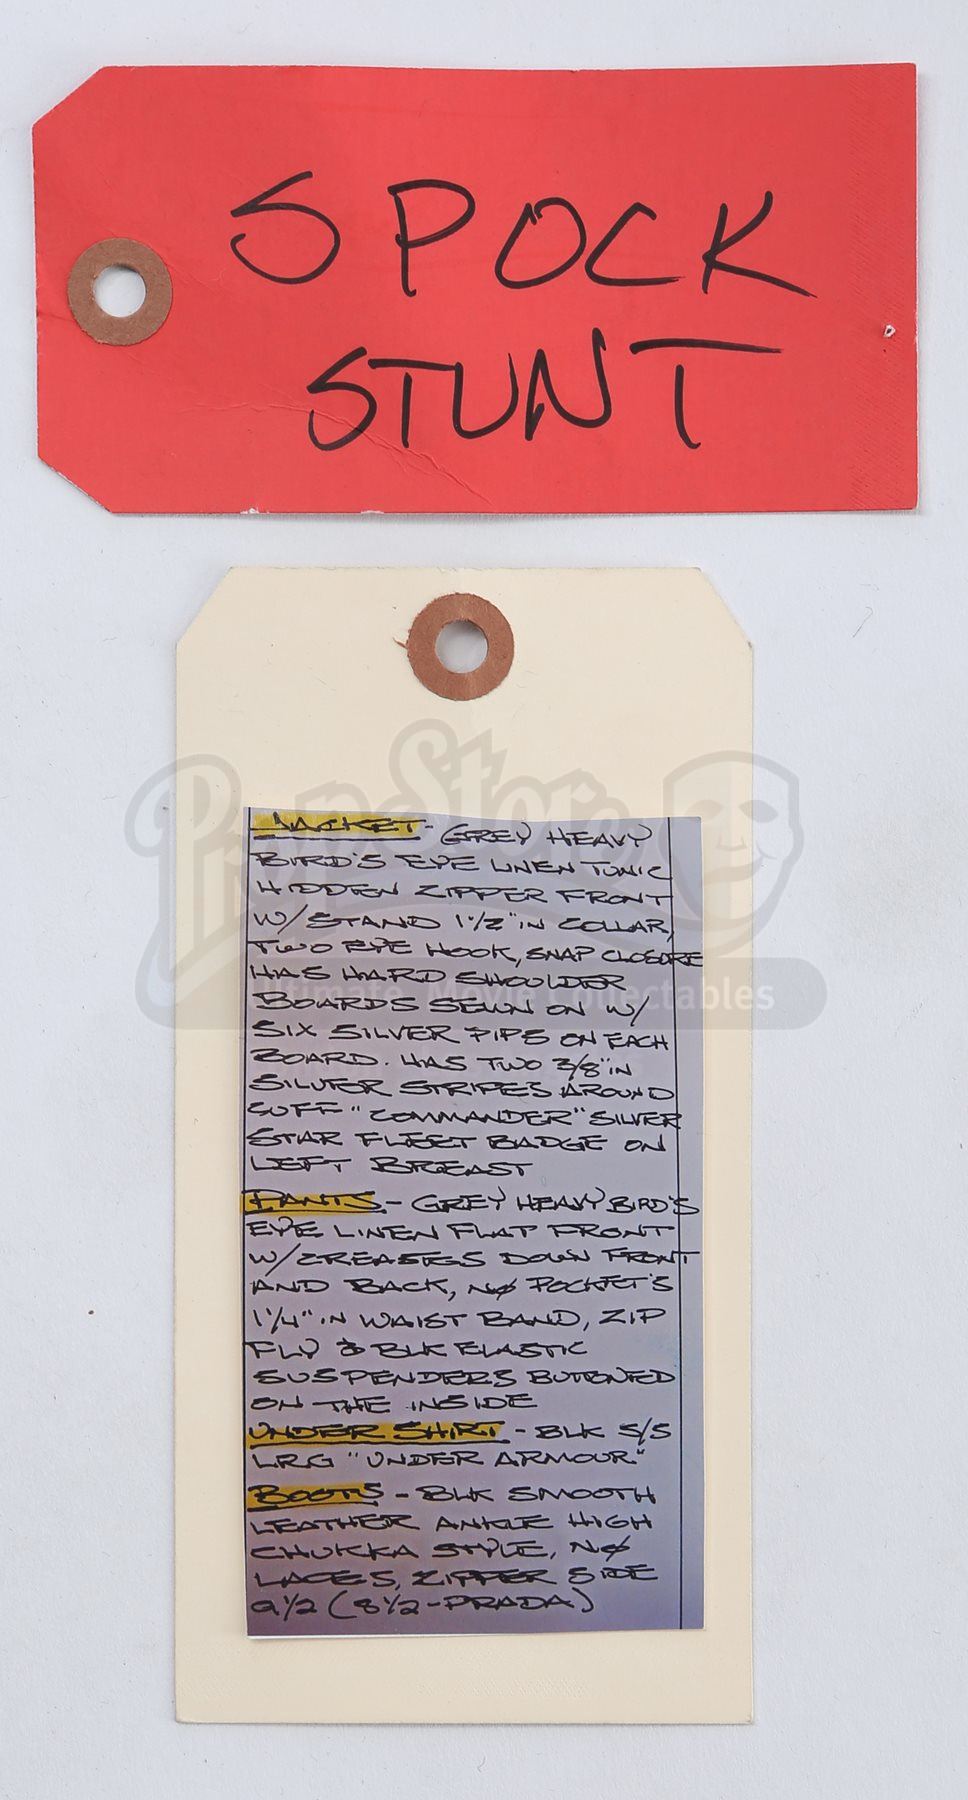 SPOCK
STUNT
JACKET - GREY HEAVY
BIRD'S EYE LINEN TUNIC
HIDDEN ZIPPER FRONT
W/ STAND 1 1/2" IN COLLAR,
TWO EYE HOOK, SNAP CLOSURE
HAS HARD SHOULDER
BOARDS SEWN ON W/
SIX SILVER PIPS ON EACH
BOARD. HAS TWO 3/8" IN
SILVER STRIPES AROUND
CUFF "COMMANDER" SILVER
STAR FLEET BADGE ON
LEFT BREAST
PANTS - GREY HEAVY BIRD'S
EYE LINEN FLAT FRONT
W/ CREASES DOWN FRONT
AND BACK, NO POCKET'S
1 1/4" IN WAIST BAND, ZIP
FLY & BLK ELASTIC
SUSPENDERS BUTTONED
ON THE INSIDE
UNDER SHIRT - BLK S/S
LRG "UNDER ARMOUR"
BOOTS - BLK SMOOTH
LEATHER ANKLE HIGH
CHUKKA STYLE, NO
LACES, ZIPPER SIDE
9 1/2 (8 1/2 - PRADA)
Prop Store
Ultimate Movie Collectables